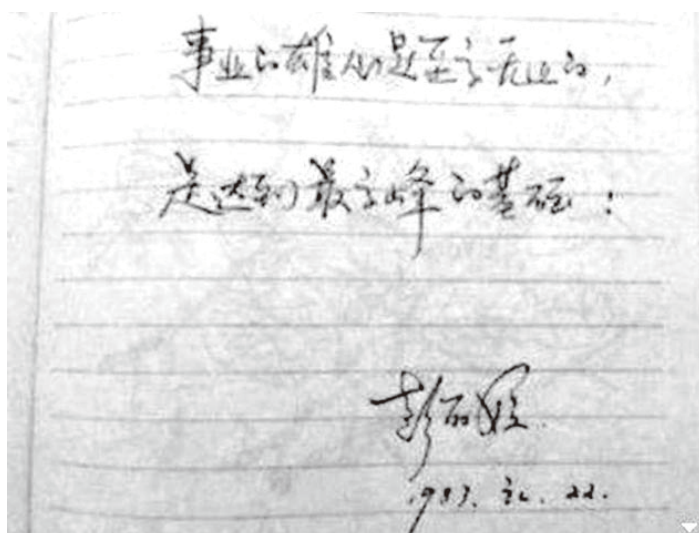 事业的雄心是至高无上的，
是达到最高峰的基础：
彭丽媛
1983.12.22.